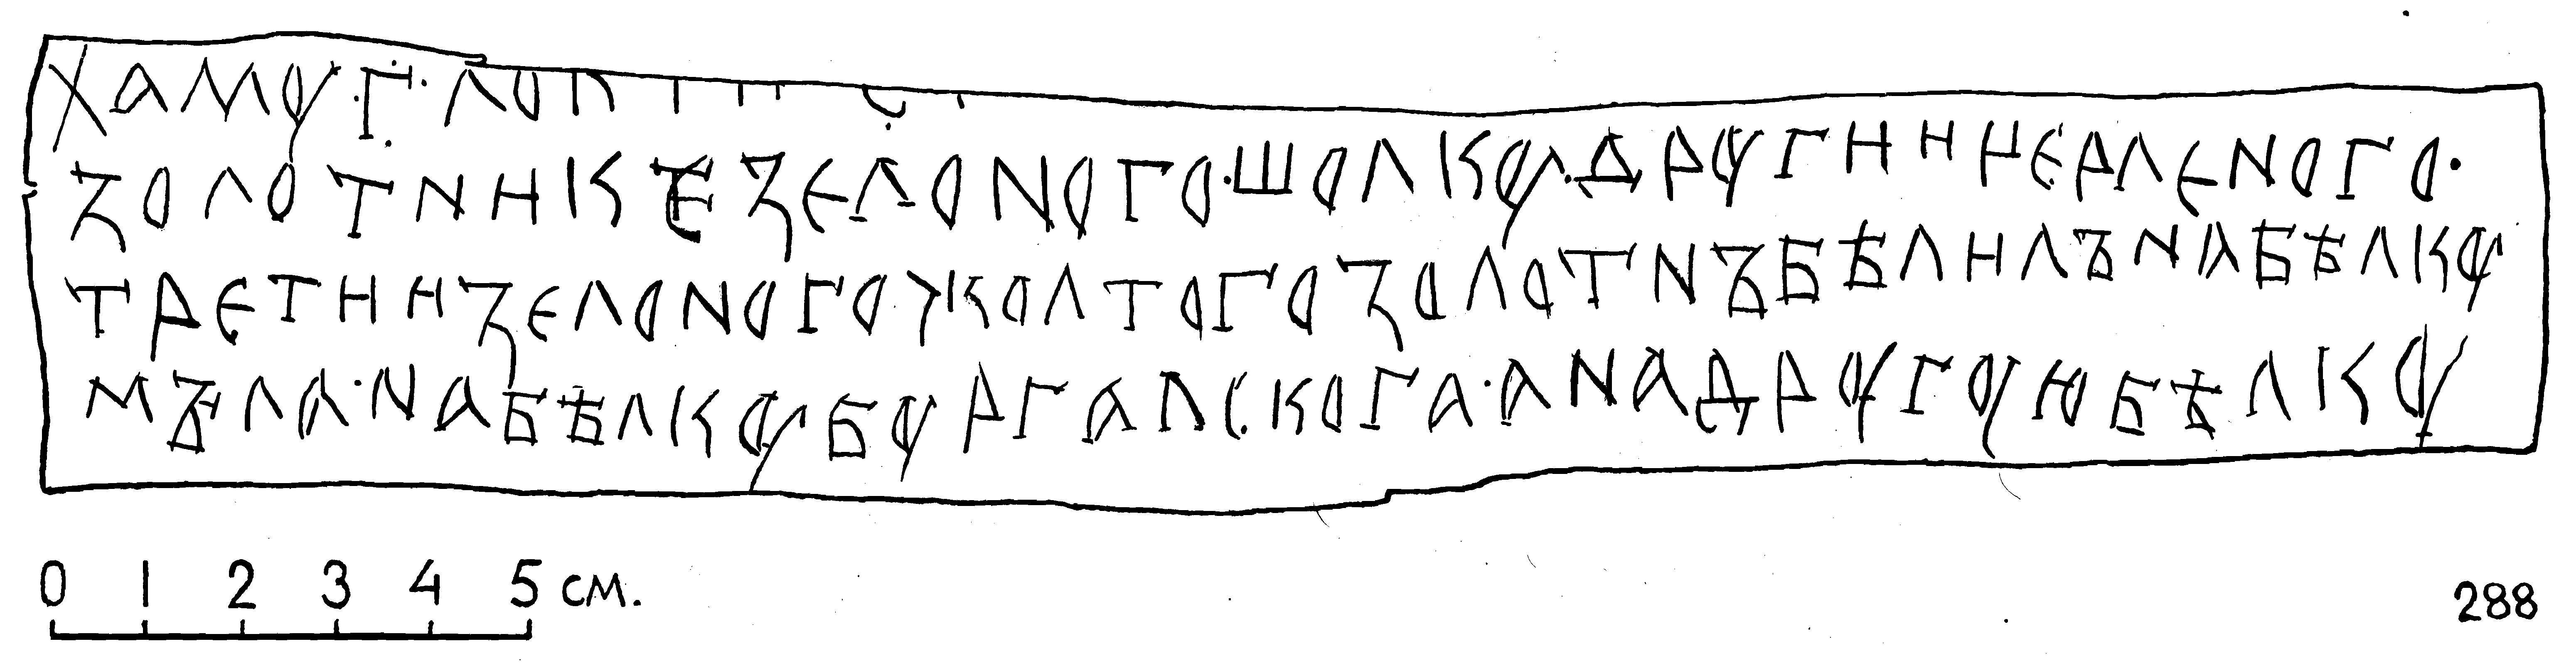 хамꙋ·г҃·лок
золотникезелоного·шолкꙋ·дрꙋгиицерленого·
третиизелоногожолтогозолотнъбѣлилънабѣлкꙋ
мъіла·набѣлкꙋбꙋргалскога·анадрꙋгꙋюбѣлкꙋ
0 1 2 3 4 5 см.
288